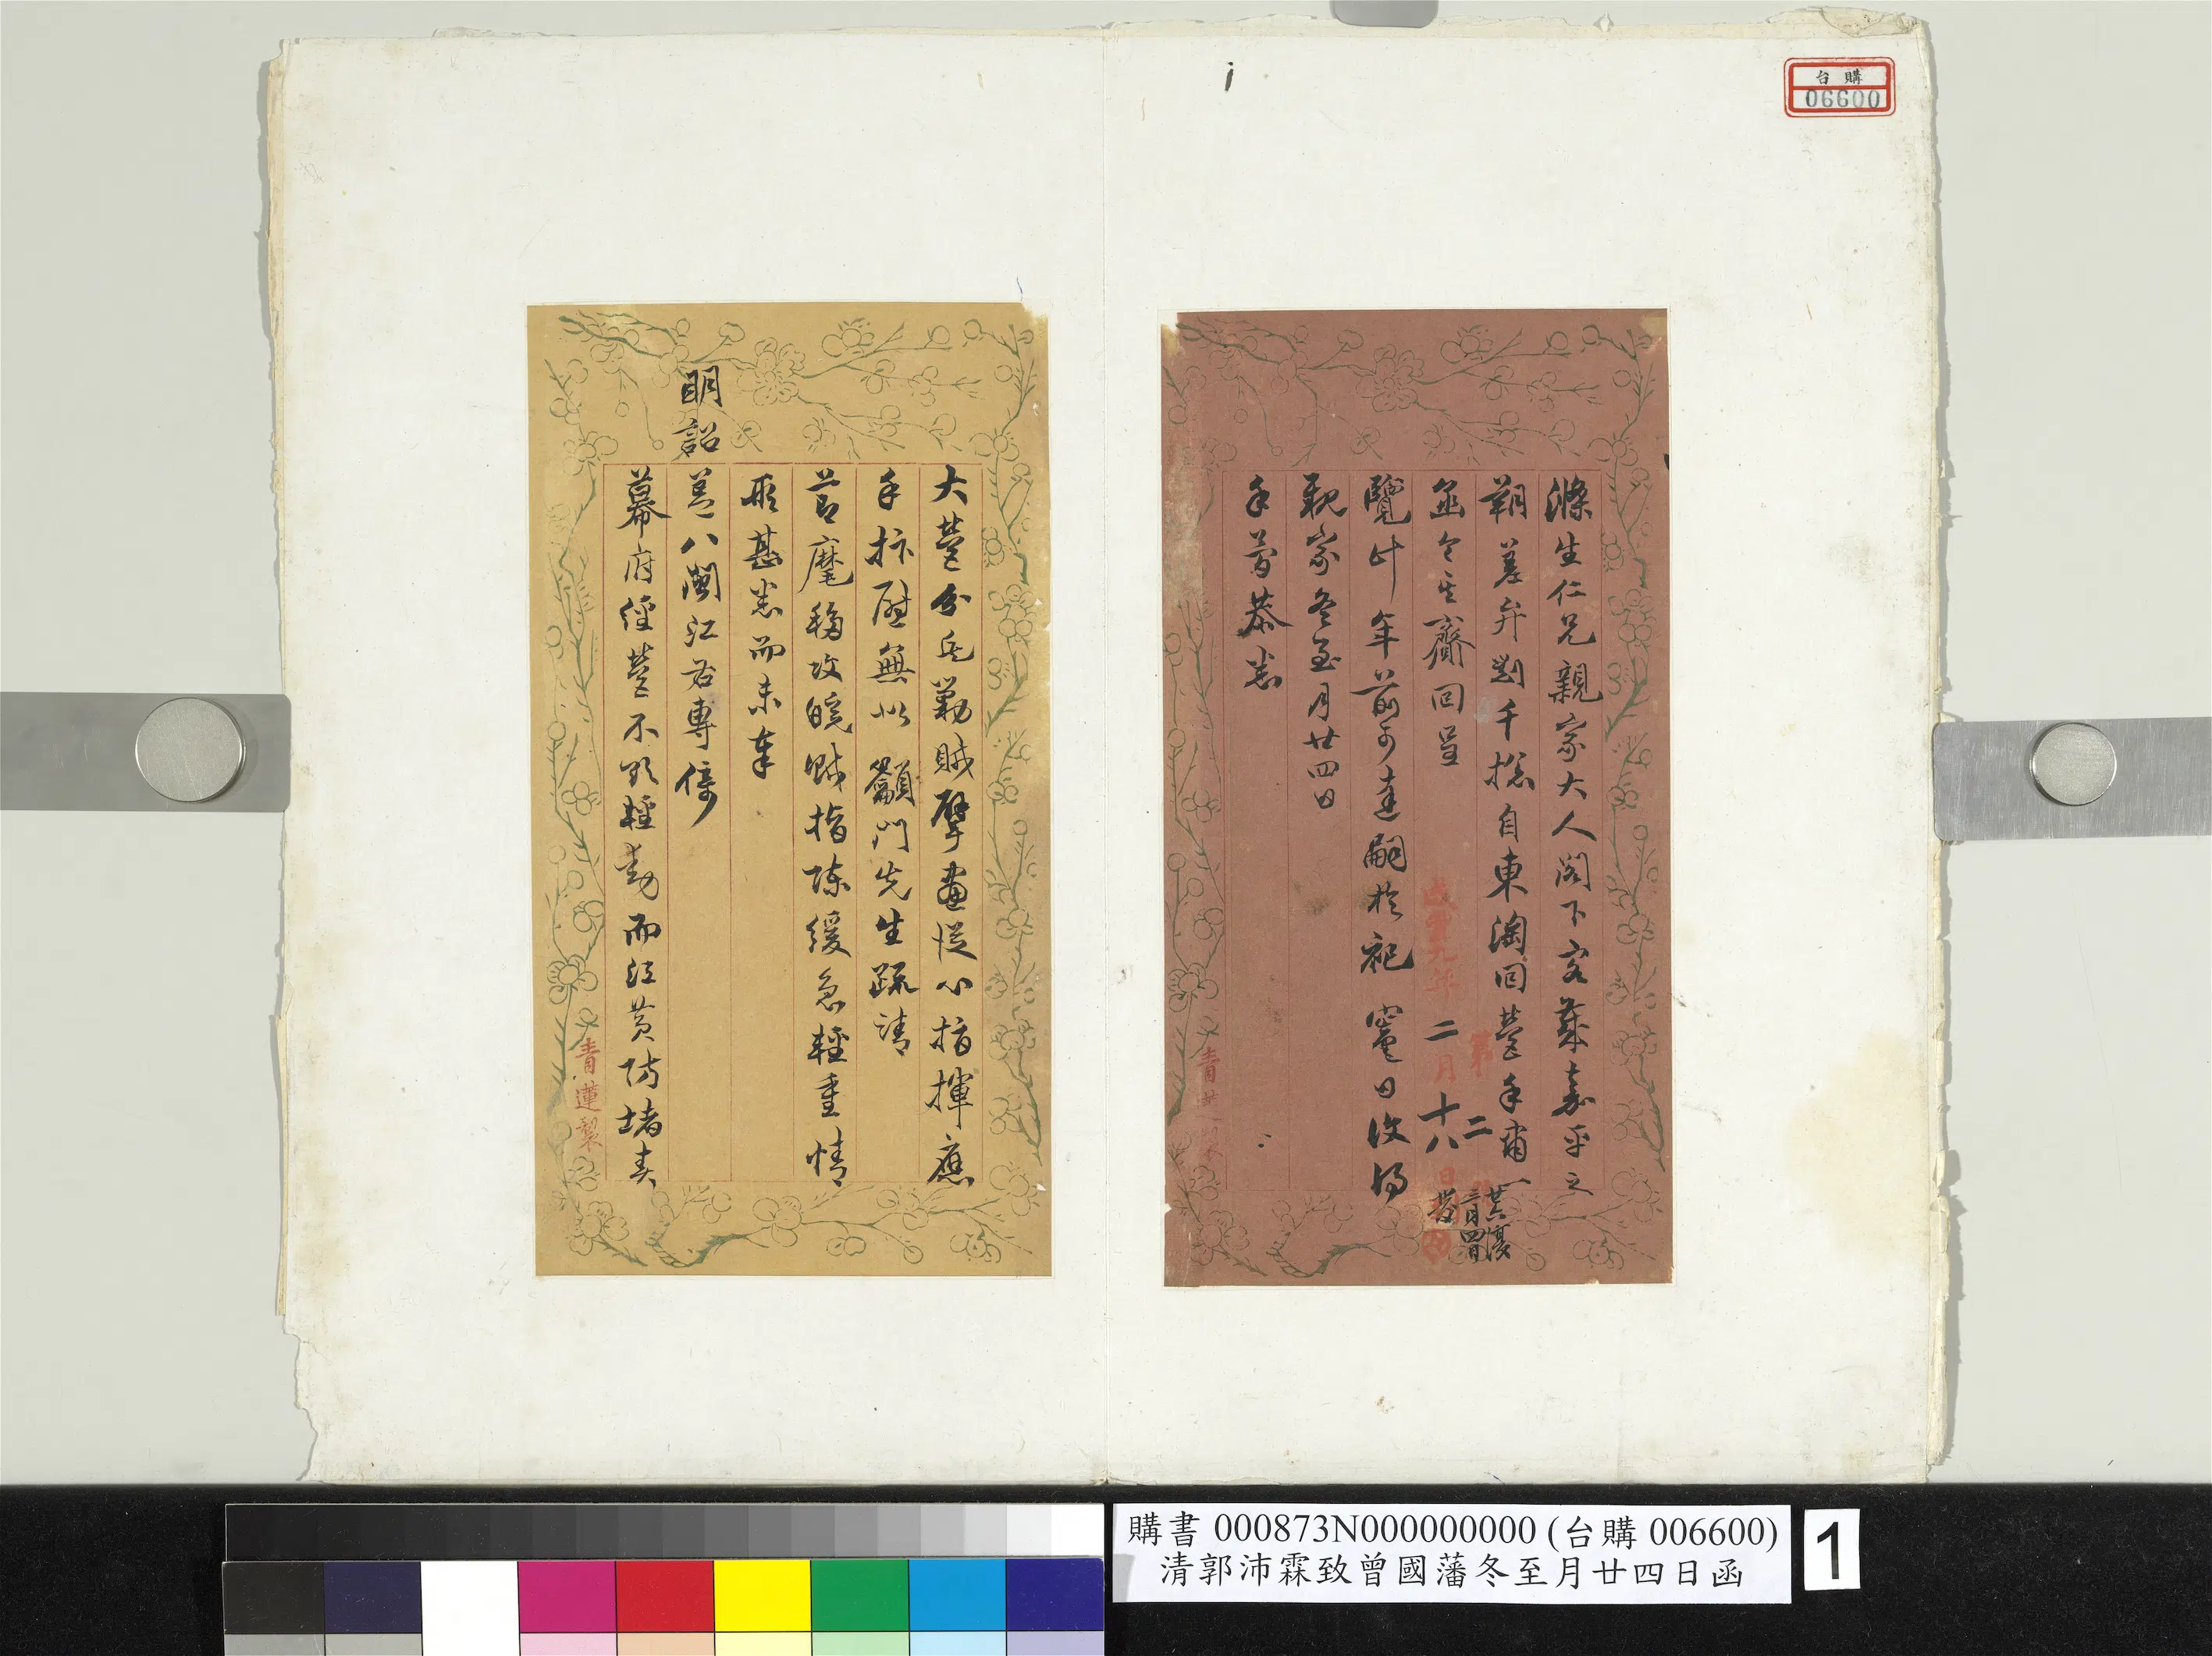 台購
06600
滌生仁兄親家大人閣下客歲嘉平之
朔差弁劉千總自東淘回營手肅一
函令其齎回呈
覽計年前可達嗣於祀竈日收得
親家冬至月廿四日
手書恭悉
咸豐九年二月十八日
第二
廿六復
二月四日
青蓮製
大營分兵勦賊擘畫從心指揮應
手抃慰無似籲門先生疏請
節麾移攻皖賊指陳緩急輕重情
形甚悉而未奉
明詔蓋八閩江右專倚
幕府經營不欲輕動而江黃防堵責
青蓮製
購書 000873N000000000 (台購 006600)
清郭沛霖致曾國藩冬至月廿四日函
1